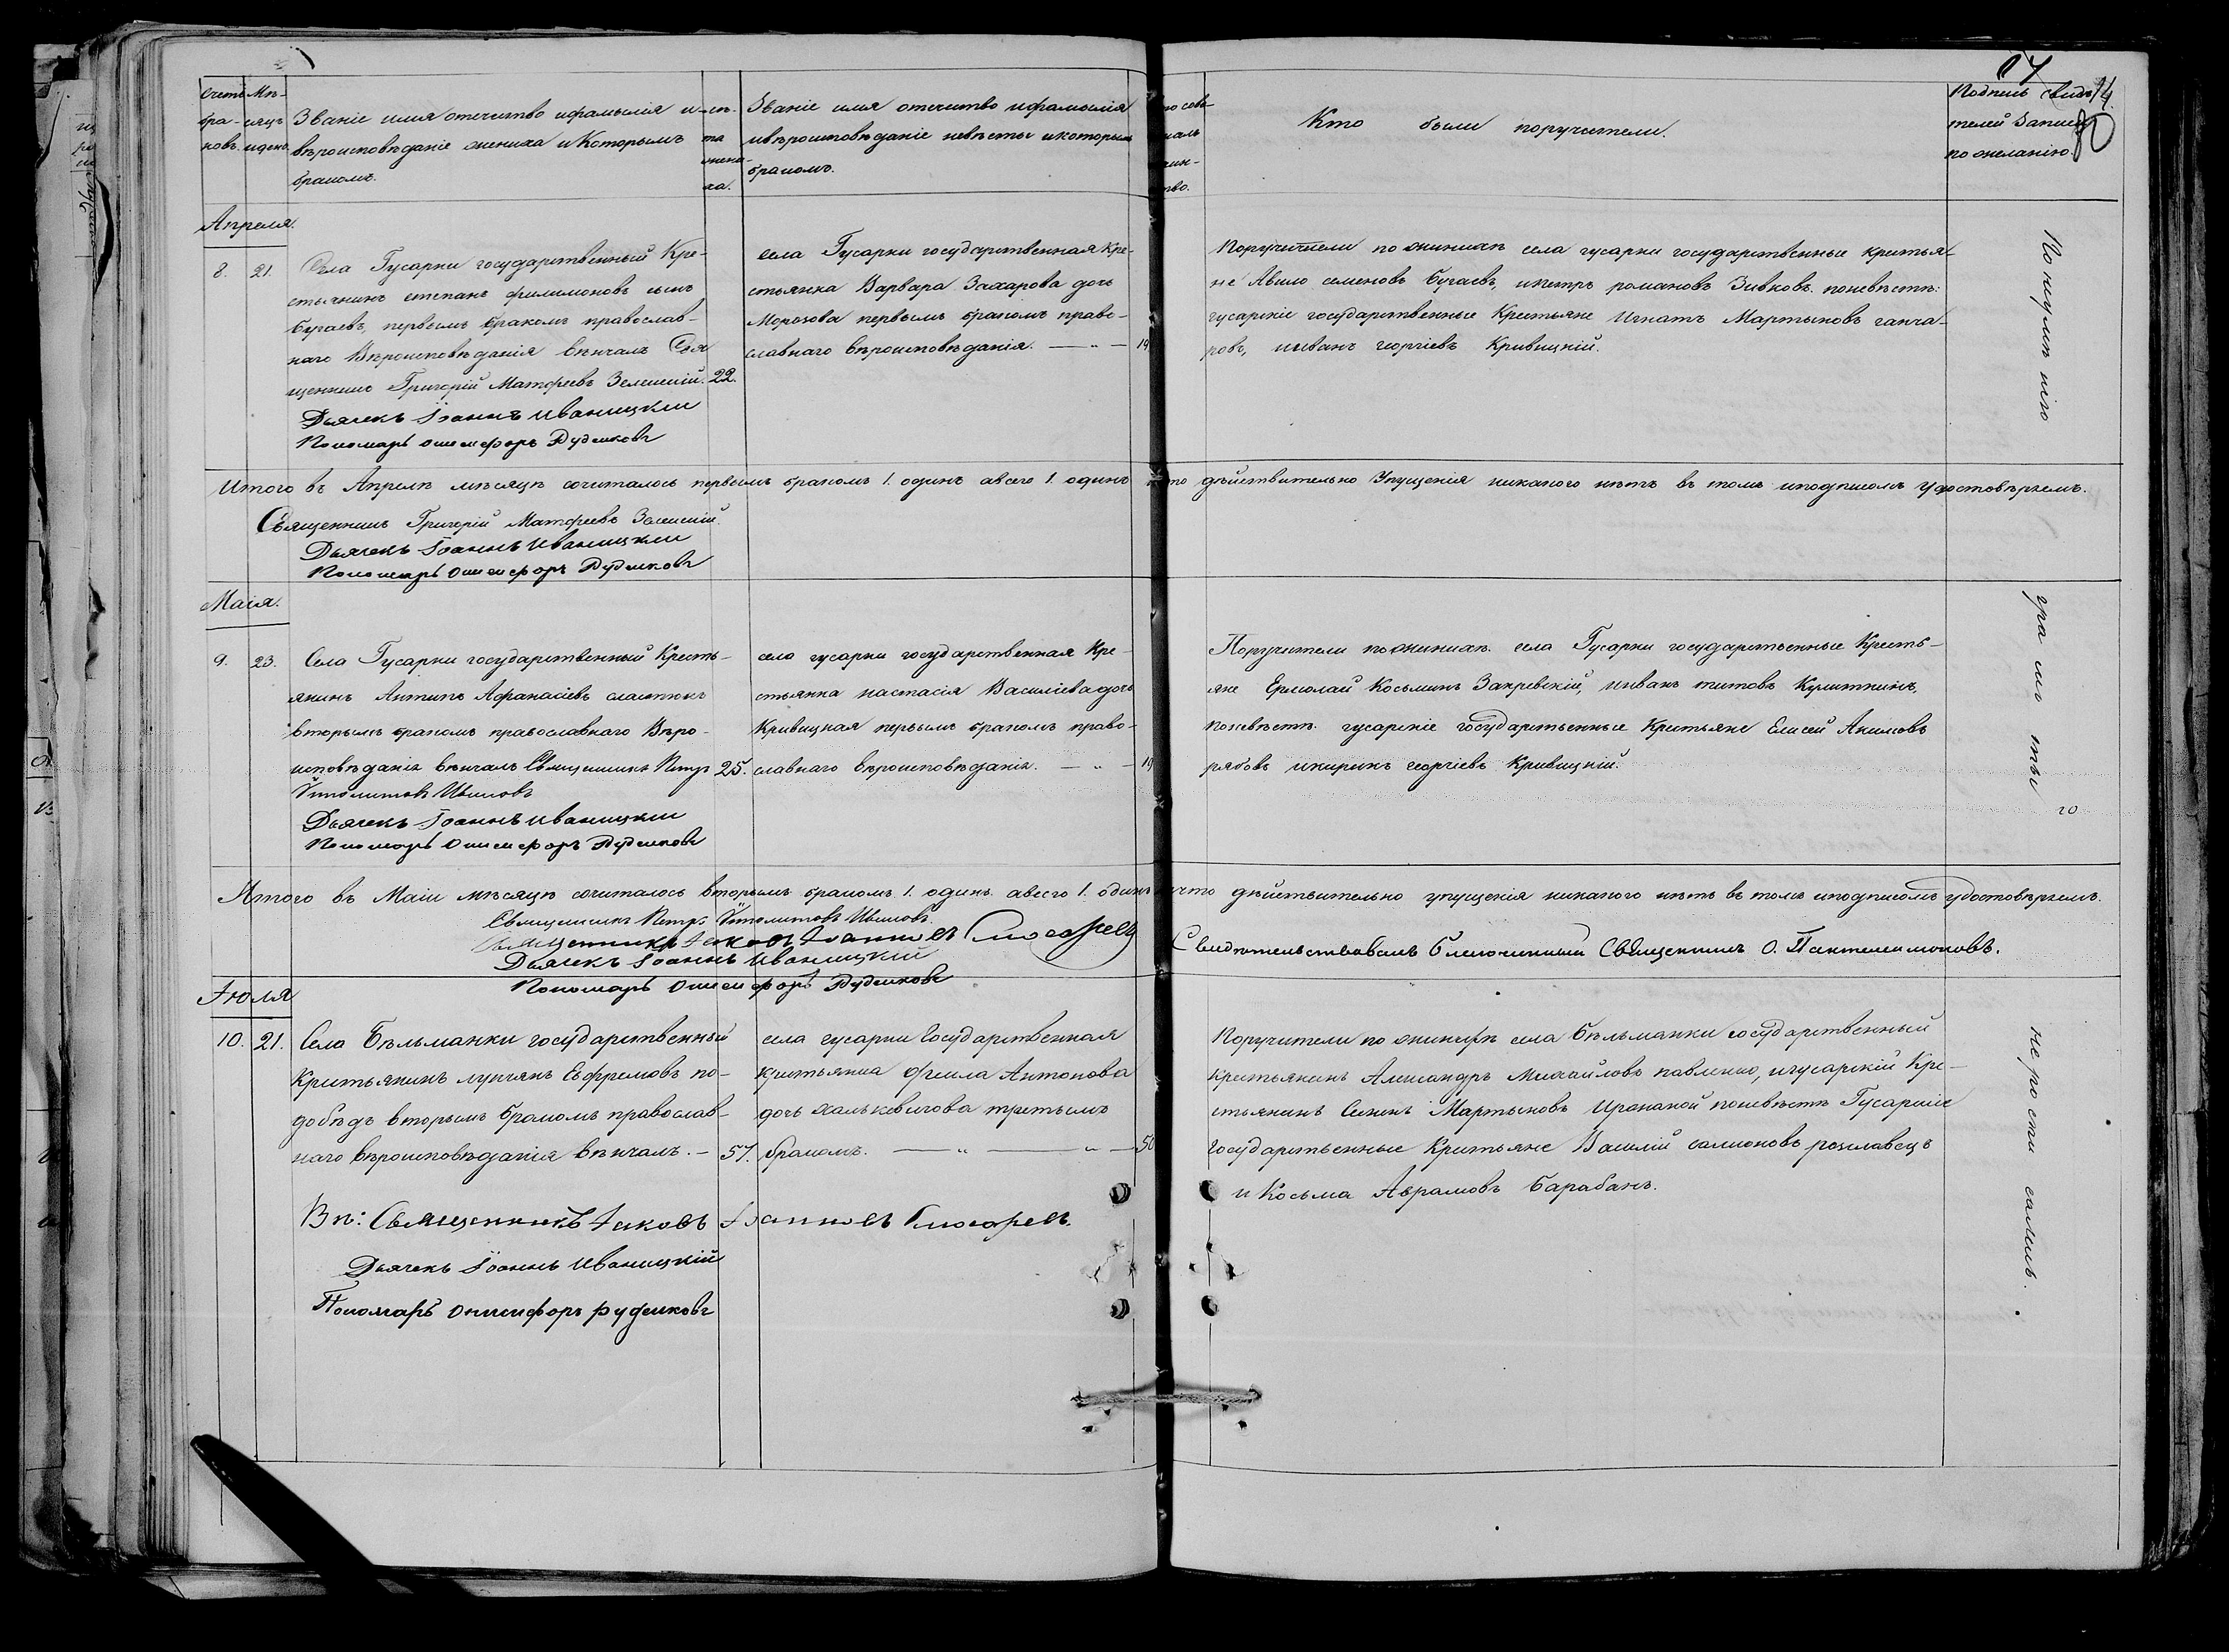 счетъ бра- ковъ.
Мѣ- сяцъ и день.
Званіе имя отечество ифамылія и
вѣроисповѣданіе жениха и Которымъ
бракомъ.
лѣ-
та
жени-
ха.
Званіе имя отечество ифамылія
ивѣроисповѣданіе невѣсты икоторымъ
бракомъ.
Кто были поручители.
Подпись свидѣ-
телей Записи
по желанію.
14.
80
Апреля.
8. 21.
Села Гусарки государственный Кре-
стьянинъ степанъ филимоновъ сынъ
Бугаевъ, первымъ бракомъ православ-
наго Вѣроисповѣданія вѣнчалъ Свя
щенникъ Григорій Матфеевъ Зеленскій. 22.
Дьячекъ Іоаннъ Иваницкій
Пономарь Онисифоръ Руденковъ
села Гусарки государственная Кре-
стьянка Варвара Захарова дочь
Морозова первымъ бракомъ право-
славнаго вѣроисповѣданія. — „ — 19
Поручители по женихѣ села гусарки государственные крестья-
не Авило семеновъ Бугаевъ, ипетръ романовъ Зивковъ. поневѣстѣ:
гусарскіе государственные Крестьяне Игнатъ Мартыновъ ганча-
ровъ, ииванъ георгіевъ Кривицкій.
Итого въ Апрелѣ мѣсяцѣ сочиталось первымъ бракомъ 1. одинъ авсего 1. одинъ что дѣйствительно Упущенія никакого нѣтъ въ томъ иподписомъ Удостовѣряемъ.
Священникъ Григорій Матфеевъ Зеленскій.
Дьячекъ Іоаннъ Иваницкій
Пономарь Онисифоръ Руденковъ
Маія.
9. 23.
Села Гусарки государственный Кресть-
янинъ Антипъ Афанасіевъ сластюкъ
вторымъ бракомъ православнаго Вѣро-
исповѣданія вѣнчалъ Священникъ Петръ 25.
Ипполитовъ Ивановъ
Дьячекъ Іоаннъ Иваницкій
Пономарь Онисифоръ Руденковъ
села гусарки государственная Кре-
стьянка настасія Василіева дочь
Кривицкая первымъ бракомъ право-
славнаго вѣроисповѣданія. — „ — 19
Поручители поженихѣ села Гусарки государственные Кресть-
яне Ермолай Косьминъ Закревскій, ииванъ титовъ
поневѣстѣ гусарскіе государственные Крестьяне Елисей Акимовъ
рябовъ икирикъ георгіевъ Кривицкій.
Итого въ Маіи мѣсяцѣ сочиталось вторымъ бракомъ 1. одинъ. авсего 1. одинъ что дѣйствительно упущенія никакого нѣтъ въ томъ иподписомъ удостовѣряемъ.
Священникъ Петръ Ипполитовъ Ивановъ.
Священникъ Іаковъ Іоанновъ Слюсаревъ
Дьячекъ Іоаннъ Иваницкій
Пономарь Онисифоръ Руденковъ
Свидѣтельствовалъ Благочинный Священникъ О. Пантелеимоновъ.
Іюля
10. 21.
Села Бѣльманки государственный
Крестьянинъ лукіянъ Ефремовъ по-
добѣдъ вторымъ бракомъ православ-
наго вѣроисповѣданія вѣнчалъ. — 57.
села гусарки Государственная
крестьянка фекла Антонова
дочь халькевичова третьимъ
бракомъ. — „ — „ — 50
Поручители по женихѣ села бѣльманки государственный
крестьянинъ Александръ Михайловъ павленко, игусарскій Кре-
стьянинъ Семенъ Мартыновъ поневѣстѣ Гусарскіе
государственные Крестьяне Василій самсоновъ рославецъ
и Косьма Аврамовъ Барабанъ.
Вѣ: Священникъ Іаковъ Іоанновъ Слюсаревъ.
Дьячекъ Іоаннъ Иваницкій
Пономарь Онисифоръ руденковъ
По неумѣнію
гра мо ты
не ро сти сались.